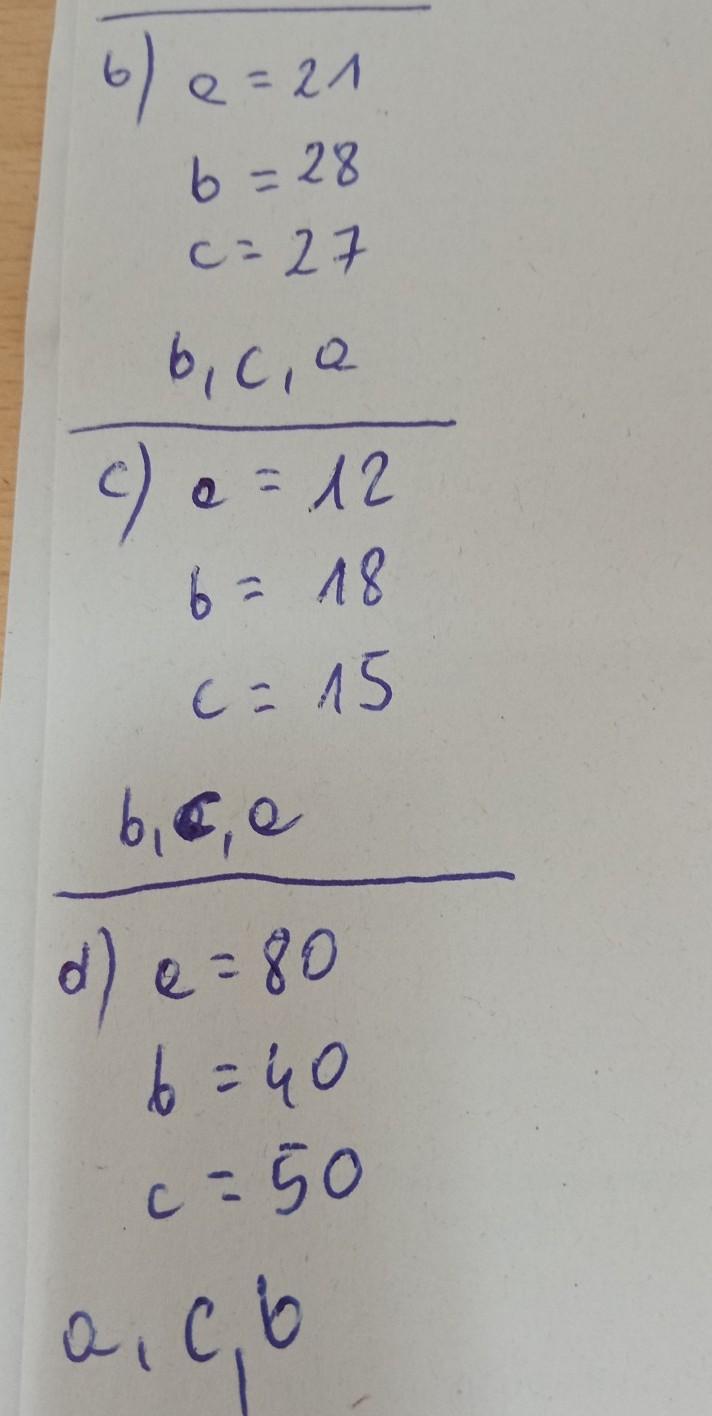 b) a = 21
b = 28
c = 27
b, c, a
c) a = 12
b = 18
c = 15
b, c, a
d) a = 80
b = 40
c = 50
a, c, b